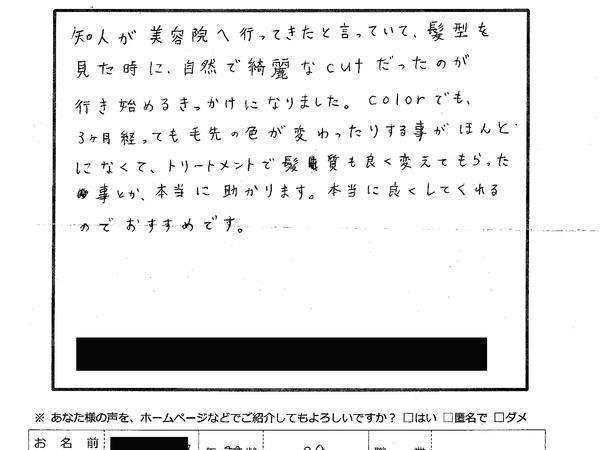 知人が美容院へ行ってきたと言っていて、髪型を
見た時に、自然で綺麗なcutだったのが
行き始めるきっかけになりました。colorでも、
3ヶ月経っても毛先の色が変わったりする事がほんと
になくて、トリートメントで髪質も良く変えてもらった
事とか、本当に助かります。本当に良くしてくれる
のでおすすめです。
※ あなた様の声を、ホームページなどでご紹介してもよろしいですか？ □はい □匿名で □ダメ
お 名 前